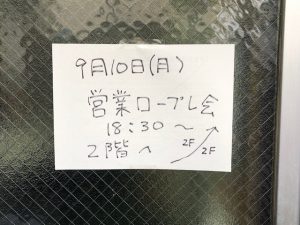 9月10日(月)
営業ロープレ会
18:30〜
2階へ
2F
2F